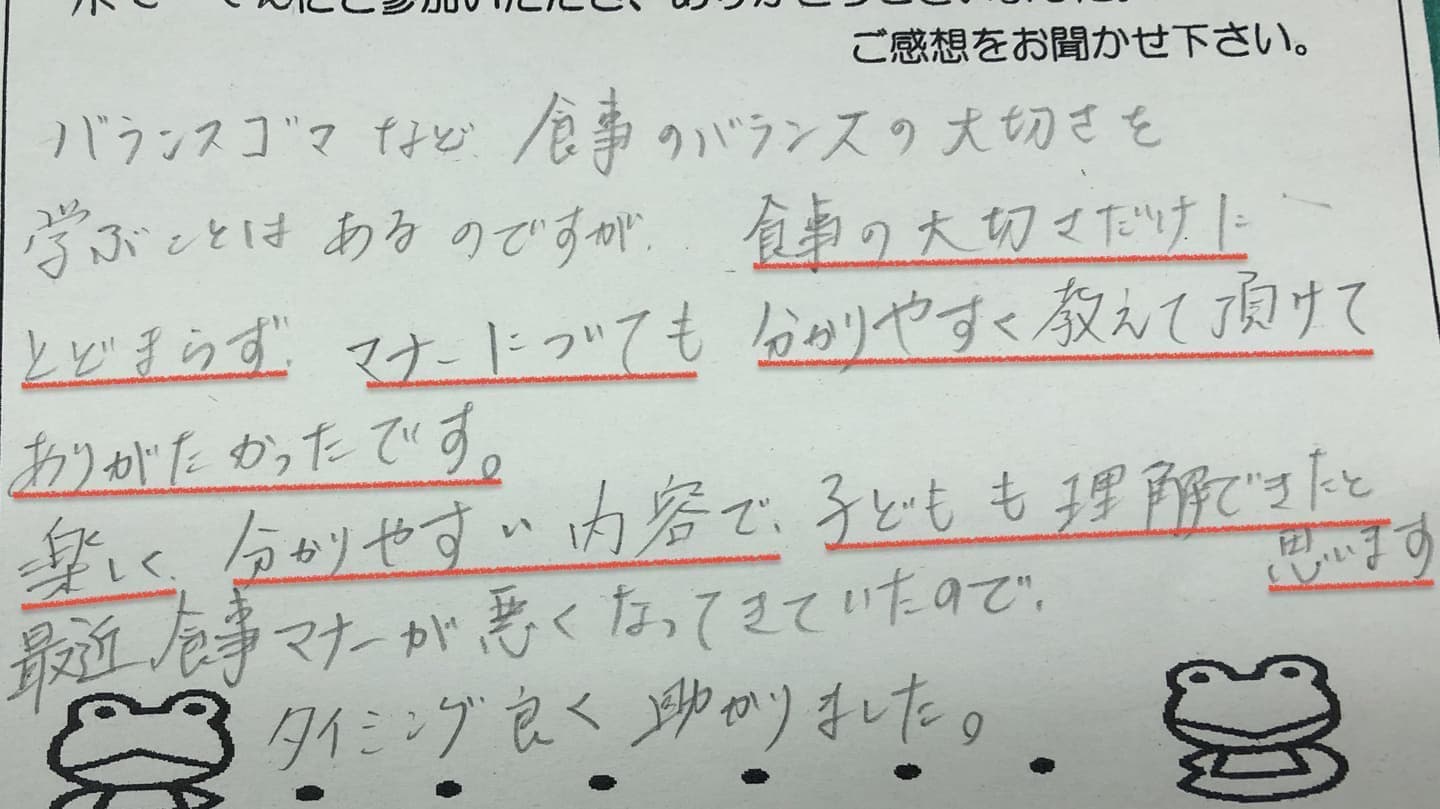 ご参加いただき、ありがとうございました。
ご感想をお聞かせ下さい。
バランスゴマ など 食事のバランスの大切さを
学ぶことは あるのですが、 食事の大切さだけに
とどまらず、 マナーについても 分かりやすく教えて頂けて
ありがたかったです。
楽しく、分かりやすい内容で、子どもも理解できたと
思います
最近、食事マナーが悪くなってきていたので、
タイミング良く 助かりました。